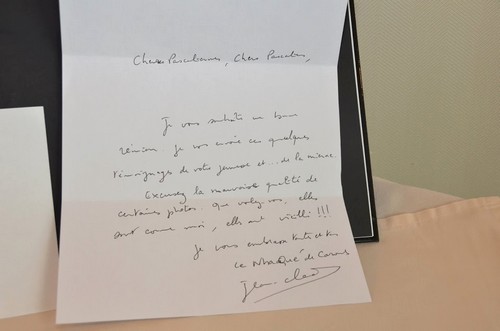 Chères Pascaliennes, Chers Pascaliens,
Je vous souhaite une bonne
réunion. Je vous envoie ces quelques
témoignages de votre jeunesse et... de la mienne.
Excusez la mauvaise qualité de
certaines photos. que voulez-vous, elles
sont comme moi, elles ont vieilli!!!
Je vous embrasse toutes et tous
Ce de
Jean-Claude